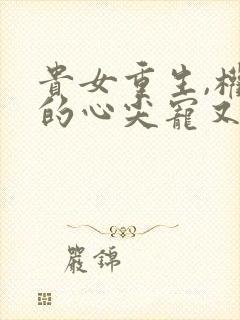 貴女重生,權
的心尖寵又
嚴錦